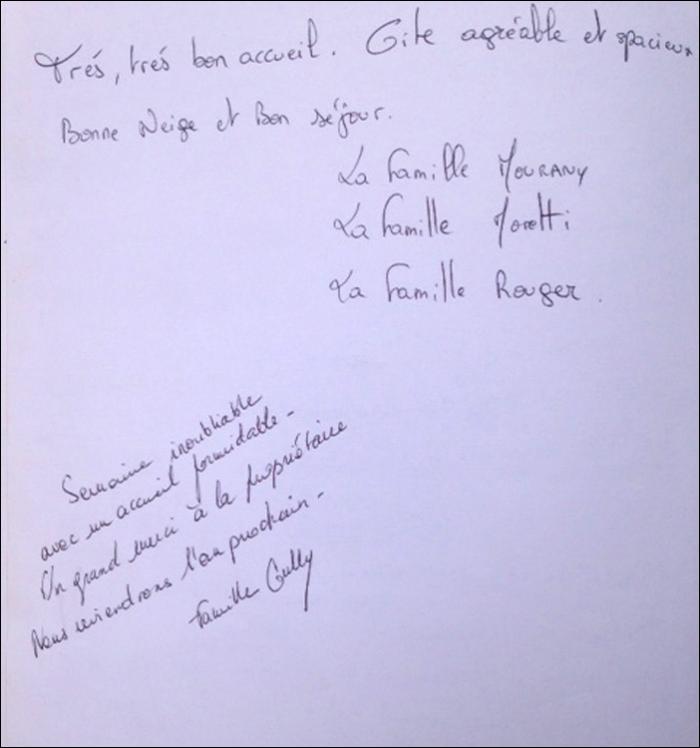 Trés, trés bon accueil. Gite agréable et spacieux
Bonne Neige et Bon séjour.
La famille MOURANY
La famille Moretti
La famille Rouger.
Semaine inoubliable
avec un accueil formidable -
Un grand merci à la propriétaire
Nous reviendrons l'an prochain -
Famille Gully